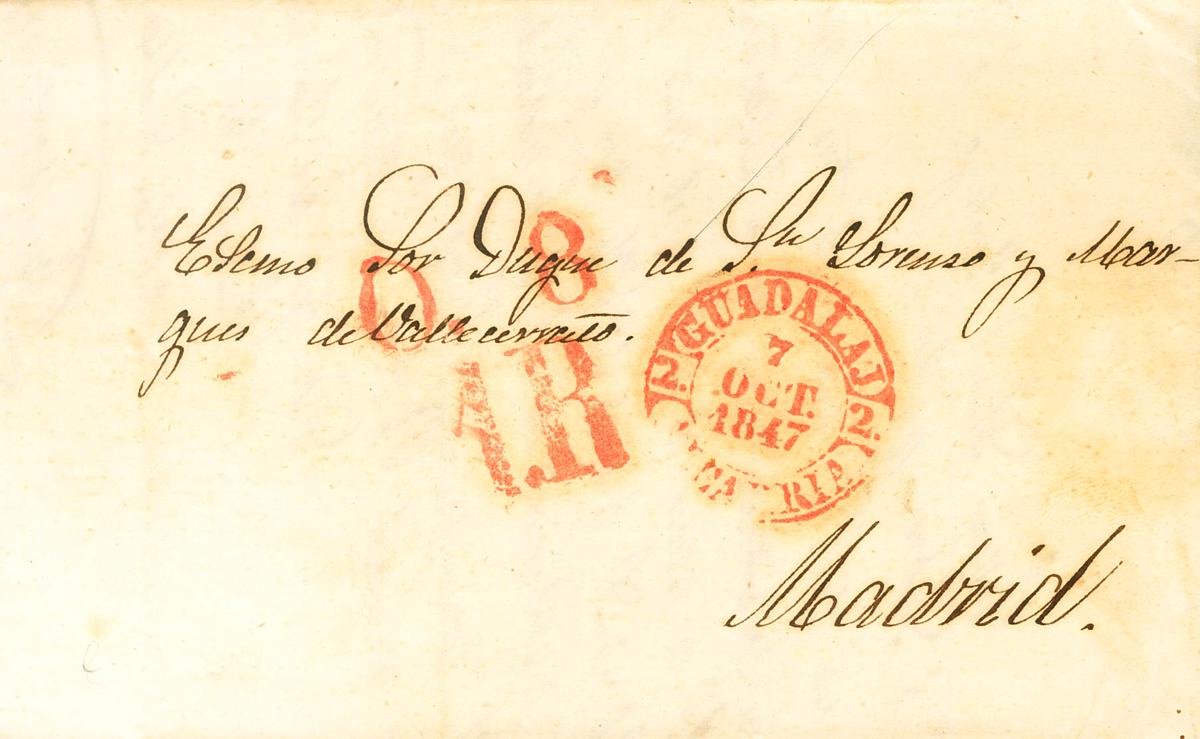 Escmo Sor Duque de Sn Lorenso y Mar-
ques de Vallecerrato.
0 8
1R
GUADALAJ
2. 2.
7
OCT.
1847
CA RIA
Madrid.